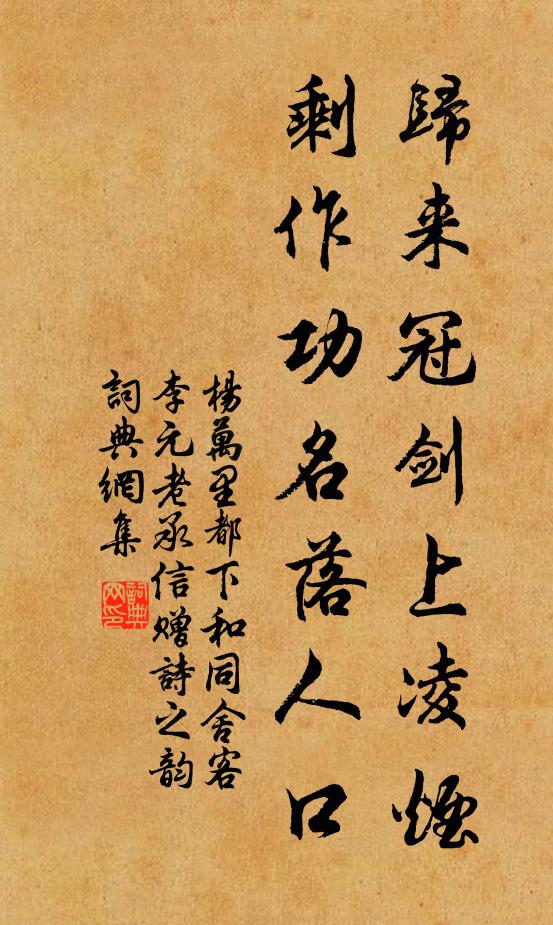 歸来冠劍上凌煙
剩作功名落人口
楊萬里都下和同舍客
李元老承信贈詩之韵
詞典網集
詞典网印